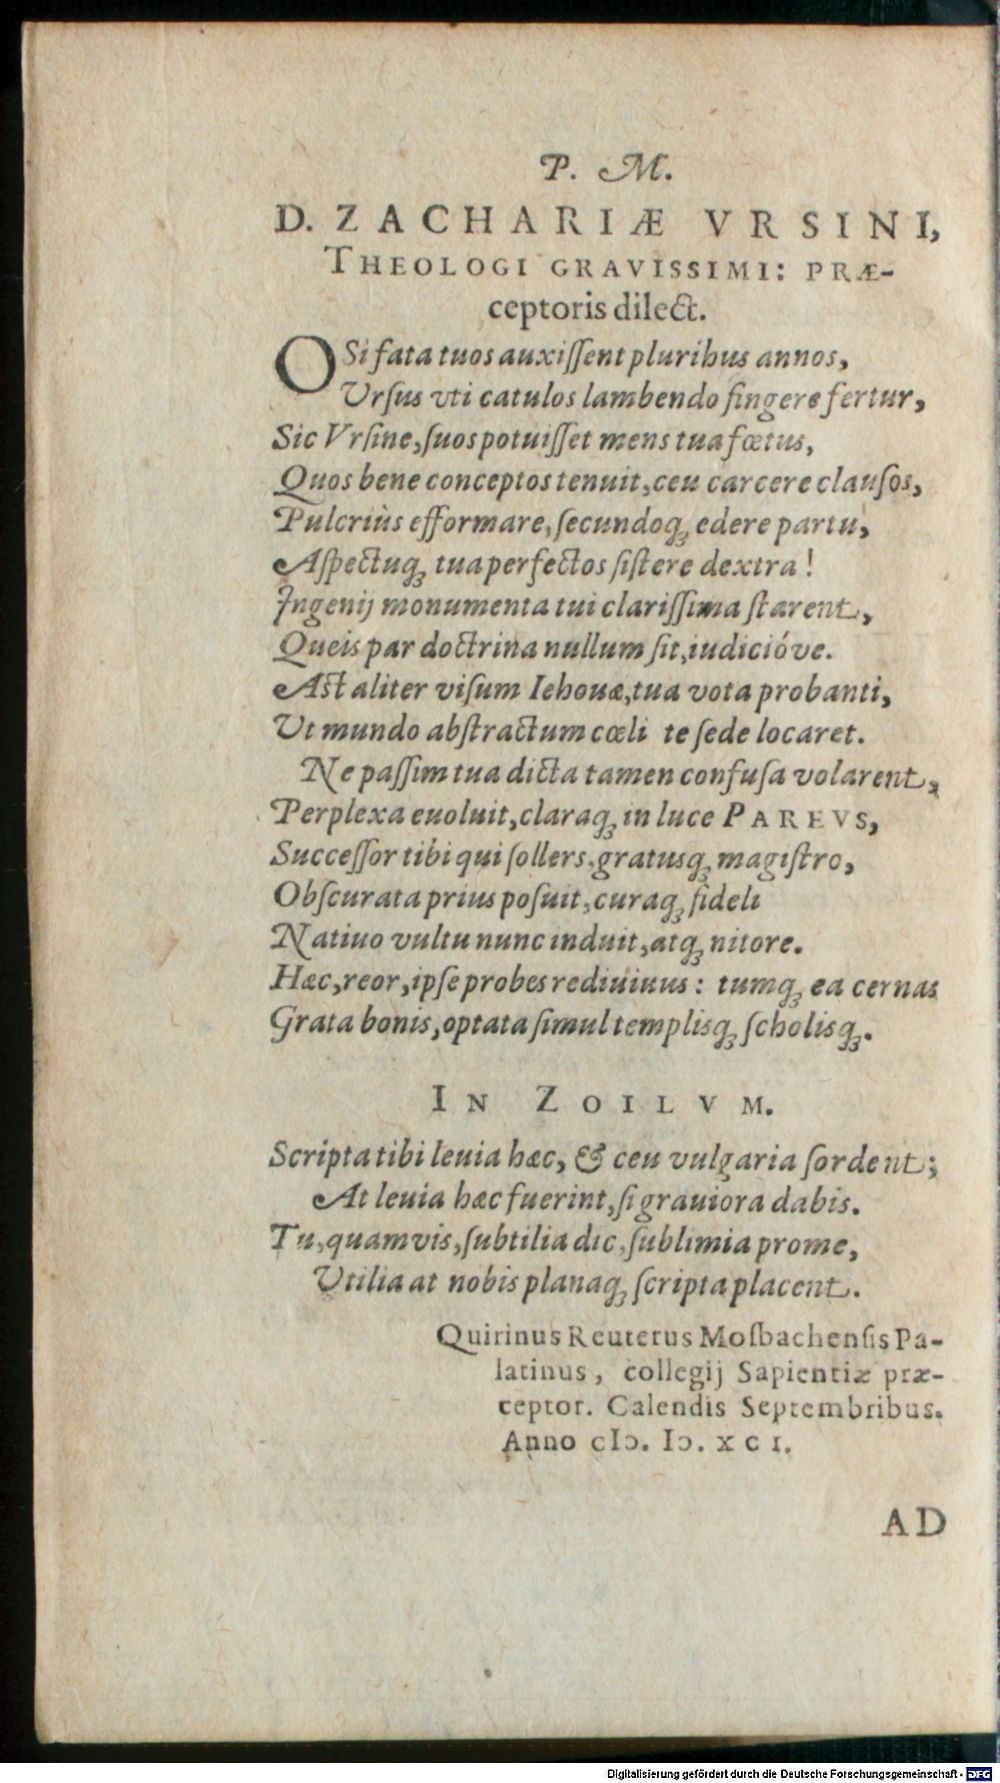 P. M.
D. ZACHARIÆ VRSINI,
THEOLOGI GRAVISSIMI: PRÆ-
ceptoris dilect.
O Si fata tuos auxiſſent pluribus annos,
Urſus vti catulos lambendo fingere fertur,
Sic Vrſine, ſuos potuiſſet mens tua fœtus,
Quos bene conceptos tenuit, ceu carcere clauſos,
Pulcriùs efformare, ſecundoq; edere partu,
Aſpectuq; tua perfectos ſiſtere dextra!
Ingenij monumenta tui clariſſima ſtarent,
Queis par doctrina nullum ſit, iudicióve.
Aſt aliter viſum Iehouæ, tua vota probanti,
Ut mundo abſtractum cœli te ſede locaret.
Ne paſſim tua dicta tamen confuſa volarent,
Perplexa euoluit, claraq; in luce PAREVS,
Succeſſor tibi qui ſollers, gratusq; magiſtro,
Obſcurata prius poſuit, curaq; fideli
Natiuo vultu nunc induit, atq; nitore.
Hæc, reor, ipſe probes rediuiuus: tumq; ea cernas
Grata bonis, optata ſimul templisq; ſcholisq;.
IN ZOILVM.
Scripta tibi leuia hæc, & ceu vulgaria ſordent;
At leuia hæc fuerint, ſi grauiora dabis.
Tu, quamvis, ſubtilia dic, ſublimia prome,
Utilia at nobis planaq; ſcripta placent.
Quirinus Reuterus Moſbachenſis Pa-
latinus, collegij Sapientiæ præ-
ceptor. Calendis Septembribus.
Anno cIↄ. Iↄ. XCI.
AD
Digitalisierung gefördert durch die Deutsche Forschungsgemeinschaft - DFG